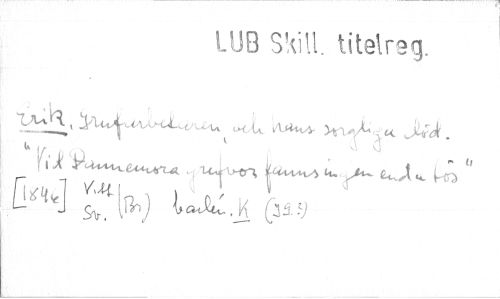 LUB Skill. titelreg.
Erik, Grufarbetaren, och hans sorgliga död.
"Vid Dannemora grufvor fanns ingen enda tös"
[1844] Vitt (Br)
Sv. K